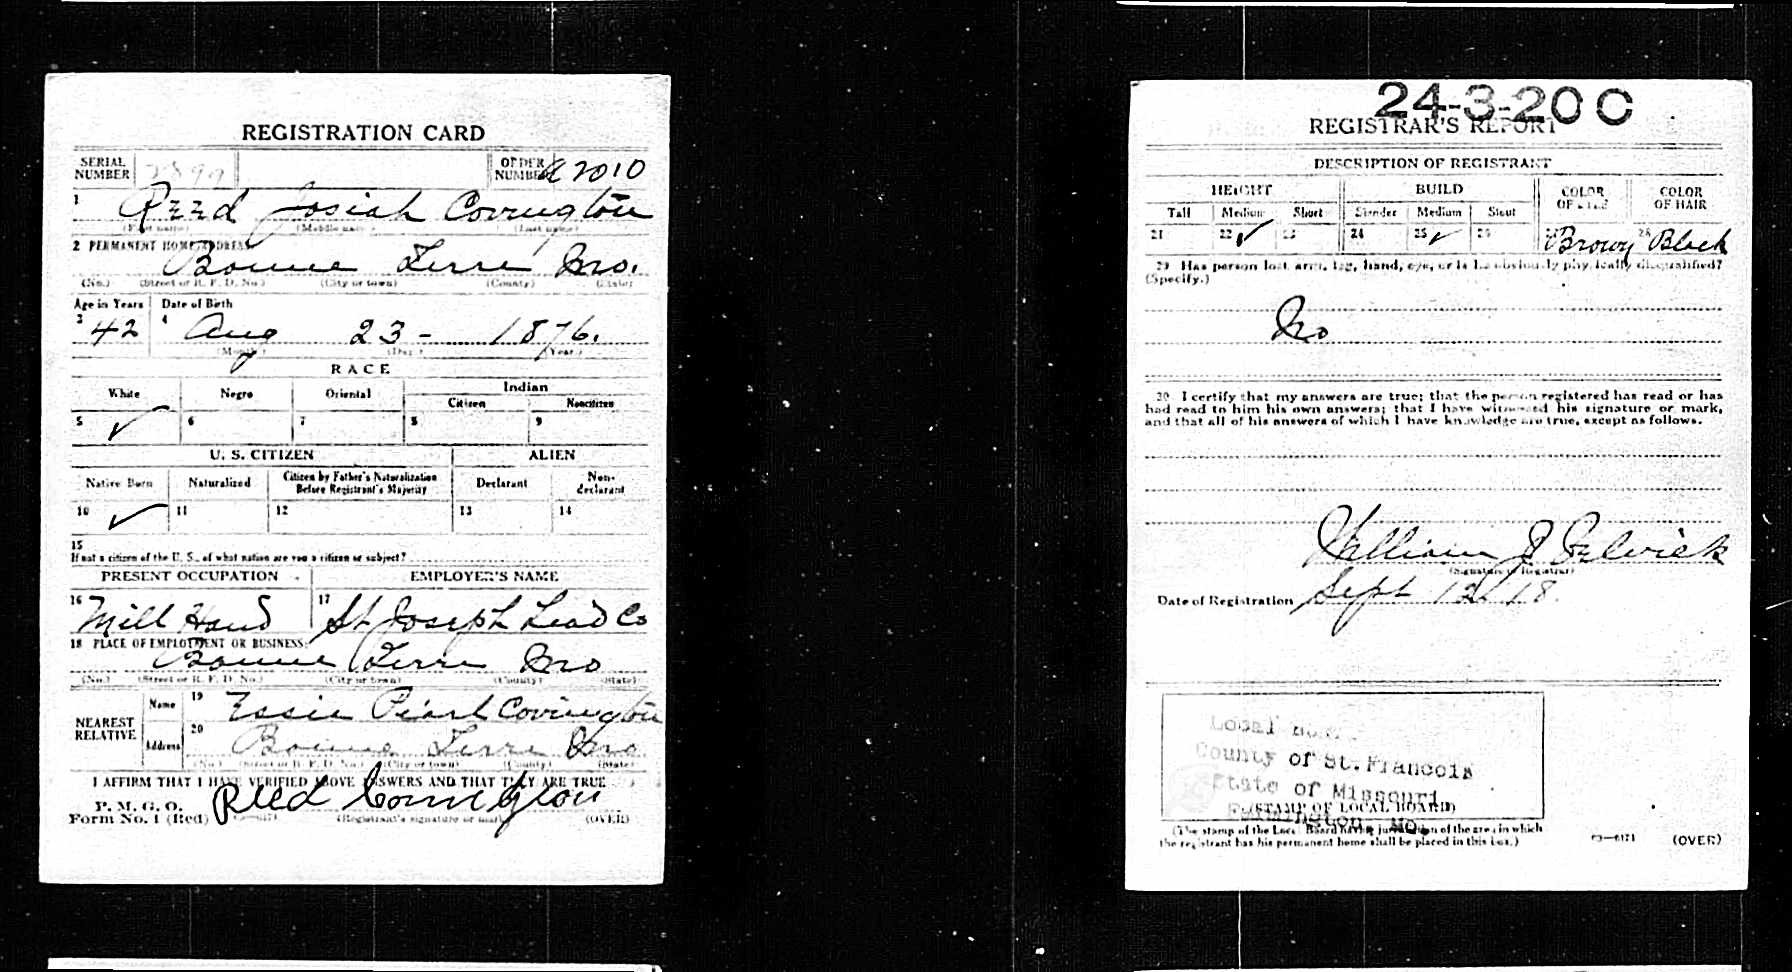 REGISTRATION CARD
SERIAL NUMBER ORDER NUMBER A2010
1 Reed Josiah Covington
(First name) (Middle name) (Last name)
2 PERMANENT HOME ADDRESS
Bonne Terre Mo.
(No.) (Street or R. F. D. No.) (City or town) (County) (State)
Age in Years Date of Birth
3 42 4 Aug 23 - 1876.
(Month) (Day) (Year)
RACE
White Negro Oriental Indian
Citizen Noncitizen
5 ✓ 6 7 8 9
U. S. CITIZEN ALIEN
Native Born Naturalized Citizen by Father's Naturalization Before Registrant's Majority Declarant Non-declarant
10 ✓ 11 12 13 14
15
If not a citizen of the U. S., of what nation are you a citizen or subject?
PRESENT OCCUPATION EMPLOYER'S NAME
16 Mill Hand 17 St Joseph Lead Co
18 PLACE OF EMPLOYMENT OR BUSINESS:
Bonne Terre Mo
(No.) (Street or R. F. D. No.) (City or town) (County) (State)
NEAREST RELATIVE
Name 19 Essie Pearl Covington
Address 20 Bonne Terre Mo
(No.) (Street or R. F. D. No.) (City or town) (County) (State)
I AFFIRM THAT I HAVE VERIFIED ABOVE ANSWERS AND THAT THEY ARE TRUE
P. M. G. O.
Form No. 1 (Red) Reed Covington
(Registrant's signature or mark) (OVER)
24-3-20 C
REGISTRAR'S REPORT
DESCRIPTION OF REGISTRANT
HEIGHT BUILD COLOR OF EYES COLOR OF HAIR
Tall Medium Short Slender Medium Stout
21 22 ✓ 23 24 25 ✓ 26 27 Brown 28 Black
29 Has person lost arm, leg, hand, eye, or is he obviously physically disqualified?
(Specify.)
No
30 I certify that my answers are true; that the person registered has read or has
had read to him his own answers; that I have witnessed his signature or mark,
and that all of his answers of which I have knowledge are true, except as follows.
William J
(Signature of Registrar)
Date of Registration Sept 12/18
Local Board
County of St. Francois
State of Missouri
(STAMP OF LOCAL BOARD)
Farmington, Mo.
(The stamp of the Local Board having jurisdiction of the area in which
the registrant has his permanent home shall be placed in this box.)
03—6171 (OVER)